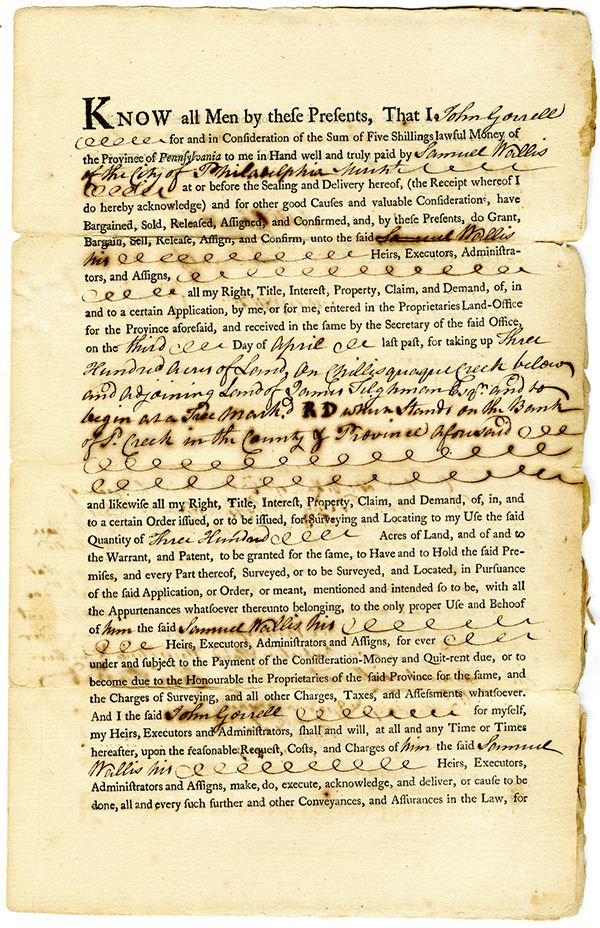 KNOW all Men by theſe Preſents, That I John Gorrell
for and in Conſideration of the Sum of Five Shillings lawful Money of
the Province of Pennſylvania to me in Hand well and truly paid by Samuel Wallis
of the City of Philadelphia Mercht
at or before the Sealing and Delivery hereof, (the Receipt whereof I
do hereby acknowledge) and for other good Cauſes and valuable Conſiderations, have
Bargained, Sold, Releaſed, Aſſigned, and Confirmed, and, by theſe Preſents, do Grant,
Bargain, Sell, Releaſe, Aſſign, and Confirm, unto the ſaid Samuel Wallis
his Heirs, Executors, Adminiſtra-
tors, and Aſſigns,
all my Right, Title, Intereſt, Property, Claim, and Demand, of, in
and to a certain Application, by me, or for me, entered in the Proprietaries Land-Office
for the Province aforeſaid, and received in the ſame by the Secretary of the ſaid Office,
on the third Day of April laſt paſt, for taking up Three
Hundred Acres of Land, On Chillisquaque Creek below
and adjoining Land of James Tilghman Esqr. and to
begin at a Tree Mark'd RD which Stands on the Bank
of sd. Creek in the County & Province Aforesaid
and likewiſe all my Right, Title, Intereſt, Property, Claim, and Demand, of, in, and
to a certain Order iſſued, or to be iſſued, for Surveying and Locating to my Uſe the ſaid
Quantity of Three Hundred Acres of Land, and of and to
the Warrant, and Patent, to be granted for the ſame, to Have and to Hold the ſaid Pre-
miſes, and every Part thereof, Surveyed, or to be Surveyed, and Located, in Purſuance
of the ſaid Application, or Order, or meant, mentioned and intended ſo to be, with all
the Appurtenances whatſoever thereunto belonging, to the only proper Uſe and Behoof
of him the ſaid Samuel Wallis his
Heirs, Executors, Adminiſtrators and Aſſigns, for ever
under and ſubject to the Payment of the Conſideration-Money and Quit-rent due, or to
become due to the Honourable the Proprietaries of the ſaid Province for the ſame, and
the Charges of Surveying, and all other Charges, Taxes, and Aſſeſſments whatſoever.
And I the ſaid John Gorrell for myſelf,
my Heirs, Executors and Adminiſtrators, ſhall and will, at all and any Time or Times
hereafter, upon the reaſonable Requeſt, Coſts, and Charges of him the ſaid Samuel
Wallis his Heirs, Executors,
Adminiſtrators and Aſſigns, make, do, execute, acknowledge, and deliver, or cauſe to be
done, all and every ſuch further and other Conveyances, and Aſſurances in the Law, for